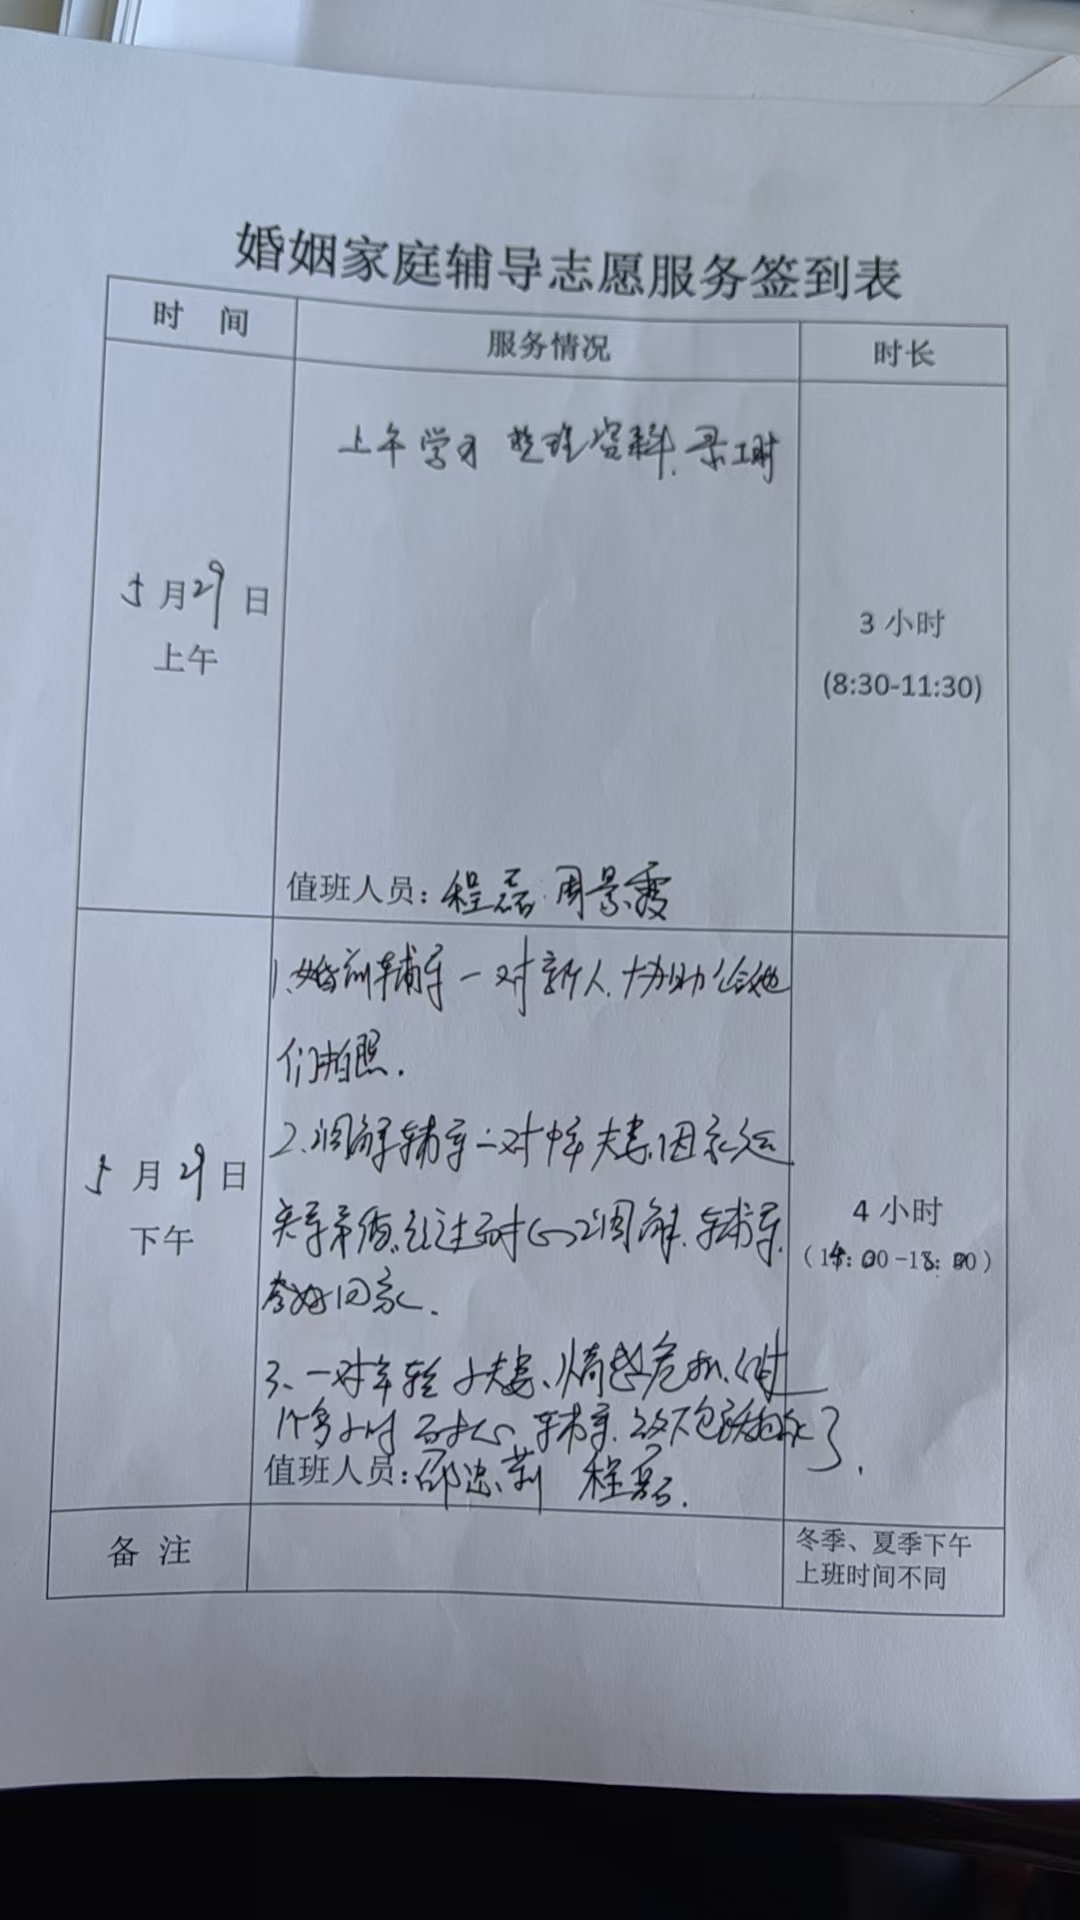 婚姻家庭辅导志愿服务签到表
时 间
服务情况
时长
5月29日
上午
上午学习 整理资料、录工时
值班人员：程磊 周景霞
3 小时
(8:30-11:30)
5月29日
下午
1、婚前辅导一对新人，协助给她
们拍照.
2、调解辅导一对中年夫妻，因家庭
关系矛盾，经过耐心调解、辅导，
回家.
3、一对年轻小夫妻、情感危机，
1个多小时耐心辅导，
了.
值班人员：邵忠莉 程磊.
4 小时
（14：00-18：00）
备 注
冬季、夏季下午
上班时间不同